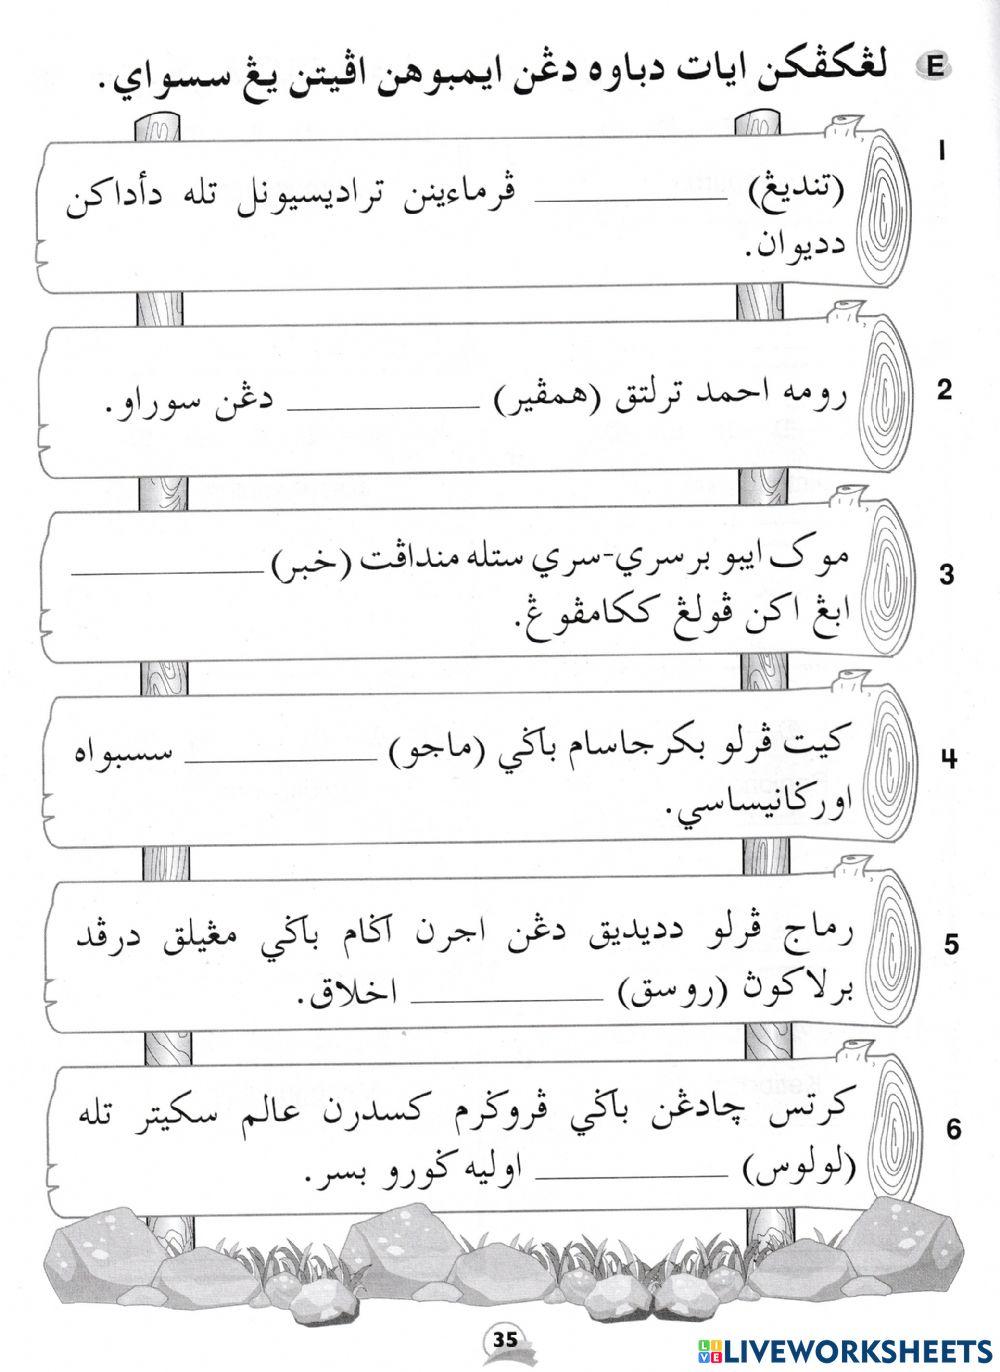 E لڠکڤکن ايات دباوه دڠن ايمبوهن اڤيتن يڠ سسواي.
1
(تنديڠ) ____________ ڤرماءينن تراديسيونل تله دأداکن
دديوان.
2
رومه احمد ترلتق (همڤير) ____________ دڠن سوراو.
3
موک ايبو برسري-سري ستله منداڤت (خبر) ____________
ابڠ اکن ڤولڠ ککامڤوڠ.
4
کيت ڤرلو بکرجاسام باݢي (ماجو) ____________ سسبواه
اورݢانيساسي.
5
رماج ڤرلو دديديق دڠن اجرن اݢام باݢي مڠيلق درڤد
برلاکوڽ (روسق) ____________ اخلاق.
6
کرتس چادڠن باݢي ڤروݢرم کسدرن عالم سکيتر تله
(لولوس) ____________ اوليه ݢورو بسر.
35
LIVE LIVEWORKSHEETS